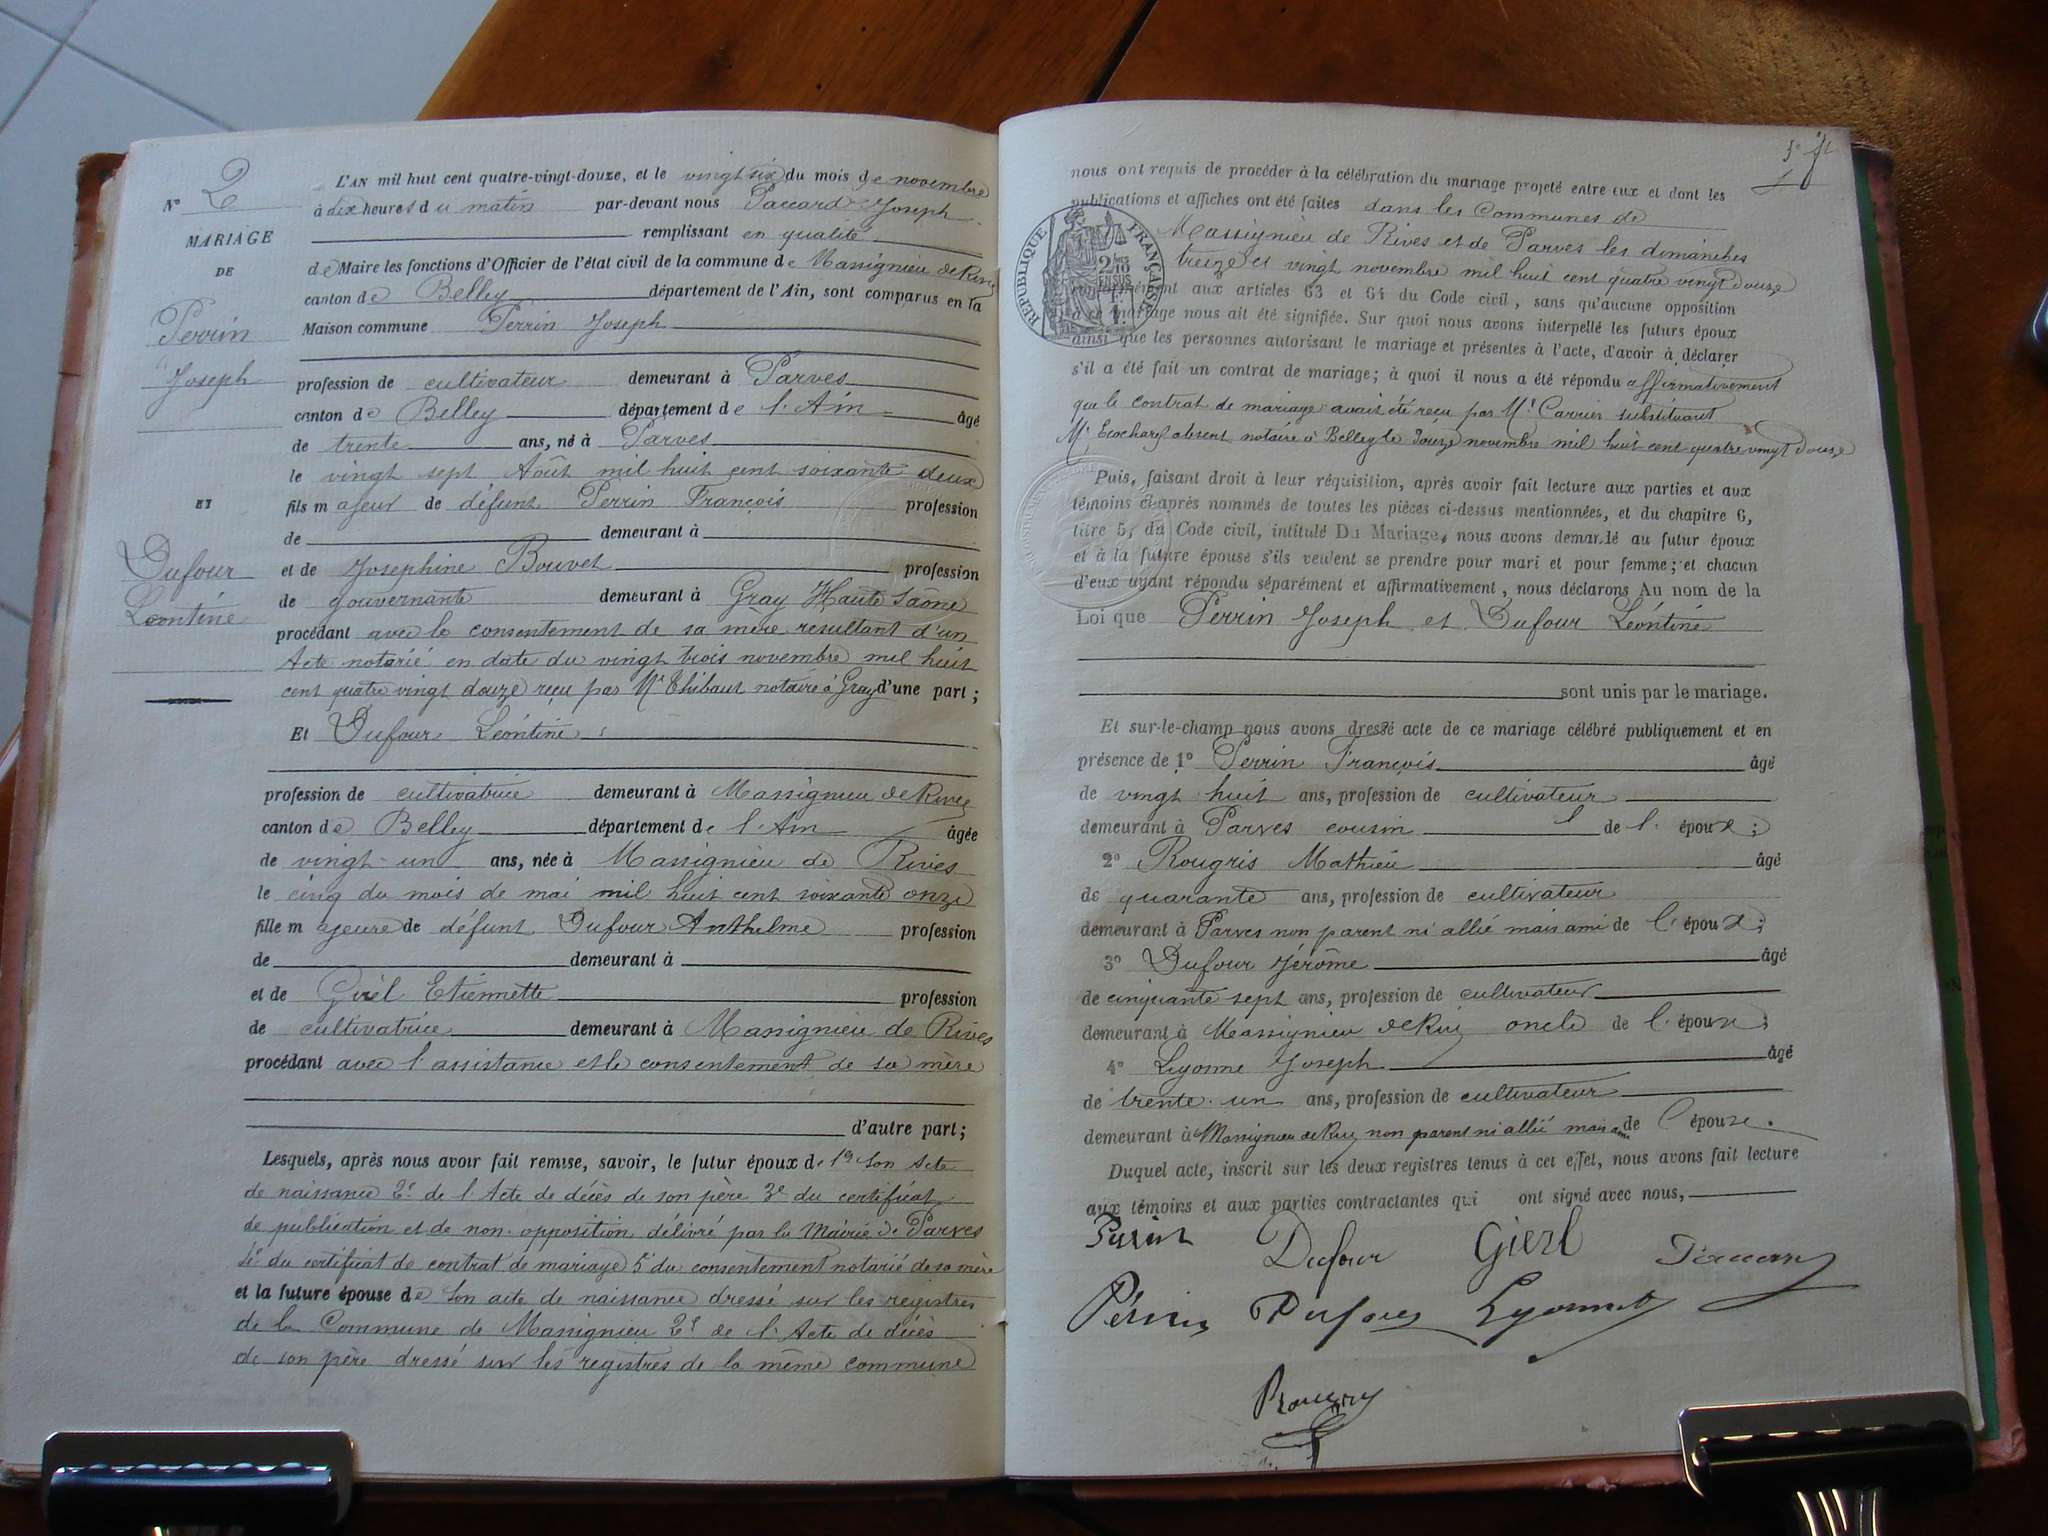 N° 2
MARIAGE
DE
Perrin
Joseph
ET
Dufour
Léontine
L'AN mil huit cent quatre-vingt-douze, et le vingt six du mois de novembre
à dix heures du matin par-devant nous Paccard Joseph
remplissant en qualité
de Maire les fonctions d'Officier de l'état civil de la commune de Massignieu de Rives
canton de Belley département de l'Ain, sont comparus en la
Maison commune Perrin Joseph
profession de cultivateur demeurant à Parves
canton de Belley département de l'Ain âgé
de trente ans, né à Parves
le vingt sept Août mil huit cent soixante deux
fils majeur de défunt Perrin François profession
de demeurant à
et de Josephine Bouvet profession
de gouvernante demeurant à Gray Haute Saône
procédant avec le consentement de sa mère resultant d'un
Acte notarié en date du vingt trois novembre mil huit
cent quatre vingt douze reçu par Mt Thibaut notaire à Gray d'une part ;
Et Dufour Léontine
profession de cultivatrice demeurant à Massignieu de Rives
canton de Belley département de l'Ain âgée
de vingt-un ans, née à Massignieu de Rives
le cinq du mois de mai mil huit cent soixante onze
fille majeure de défunt Dufour Anthelme profession
de demeurant à
et de Girel Etiennette profession
de cultivatrice demeurant à Massignieu de Rives
procédant avec l'assistance et le consentement de sa mère
d'autre part ;
Lesquels, après nous avoir fait remise, savoir, le futur époux de 1° son Acte
de naissance 2° de l'Acte de décès de son père 3° du certificat
de publication et de non-opposition délivré par la Mairie de Parves
4° du certificat de contrat de mariage 5° du consentement notarié de sa mère
et la future épouse de son acte de naissance dressé sur les registres
de la Commune de Massignieu 2° de l'Acte de décès
de son père dressé sur les registres de la même commune
nous ont requis de procéder à la célébration du mariage projeté entre eux et dont les
publications et affiches ont été faites dans les Communes de
Massignieu de Rives et de Parves les dimanches
treize et vingt novembre mil huit cent quatre vingt douze
conformément aux articles 63 et 64 du Code civil, sans qu'aucune opposition
à ce mariage nous ait été signifiée. Sur quoi nous avons interpellé les futurs époux
ainsi que les personnes autorisant le mariage et présentes à l'acte, d'avoir à déclarer
s'il a été fait un contrat de mariage ; à quoi il nous a été répondu affirmativement
que le contrat de mariage avait été reçu par Mt Carrier substituant
Mt absent notaire à Belley le douze novembre mil huit cent quatre vingt douze
RÉPUBLIQUE FRANÇAISE
Puis, faisant droit à leur réquisition, après avoir fait lecture aux parties et aux
témoins ci-après nommés de toutes les pièces ci-dessus mentionnées, et du chapitre 6,
titre 5, du Code civil, intitulé Du Mariage, nous avons demandé au futur époux
et à la future épouse s'ils veulent se prendre pour mari et pour femme ; et chacun
d'eux ayant répondu séparément et affirmativement, nous déclarons Au nom de la
Loi que Perrin Joseph et Dufour Léontine
sont unis par le mariage.
Et sur-le-champ nous avons dressé acte de ce mariage célébré publiquement et en
présence de 1° Perrin François âgé
de vingt huit ans, profession de cultivateur
demeurant à Parves cousin de l'époux ;
2° Rougris Mathieu âgé
de quarante ans, profession de cultivateur
demeurant à Parves non parent ni allié mais ami de l'époux ;
3° Dufour Jérôme âgé
de cinquante sept ans, profession de cultivateur
demeurant à Massignieu de Rives oncle de l'épouse ;
4° Lyonne Joseph âgé
de trente-un ans, profession de cultivateur
demeurant à Massignieu de Rives non parent ni allié mais ami de l'épouse.
Duquel acte, inscrit sur les deux registres tenus à cet effet, nous avons fait lecture
aux témoins et aux parties contractantes qui ont signé avec nous,
Perrin Dufour Gierl
Périn Dufour Lyonnet